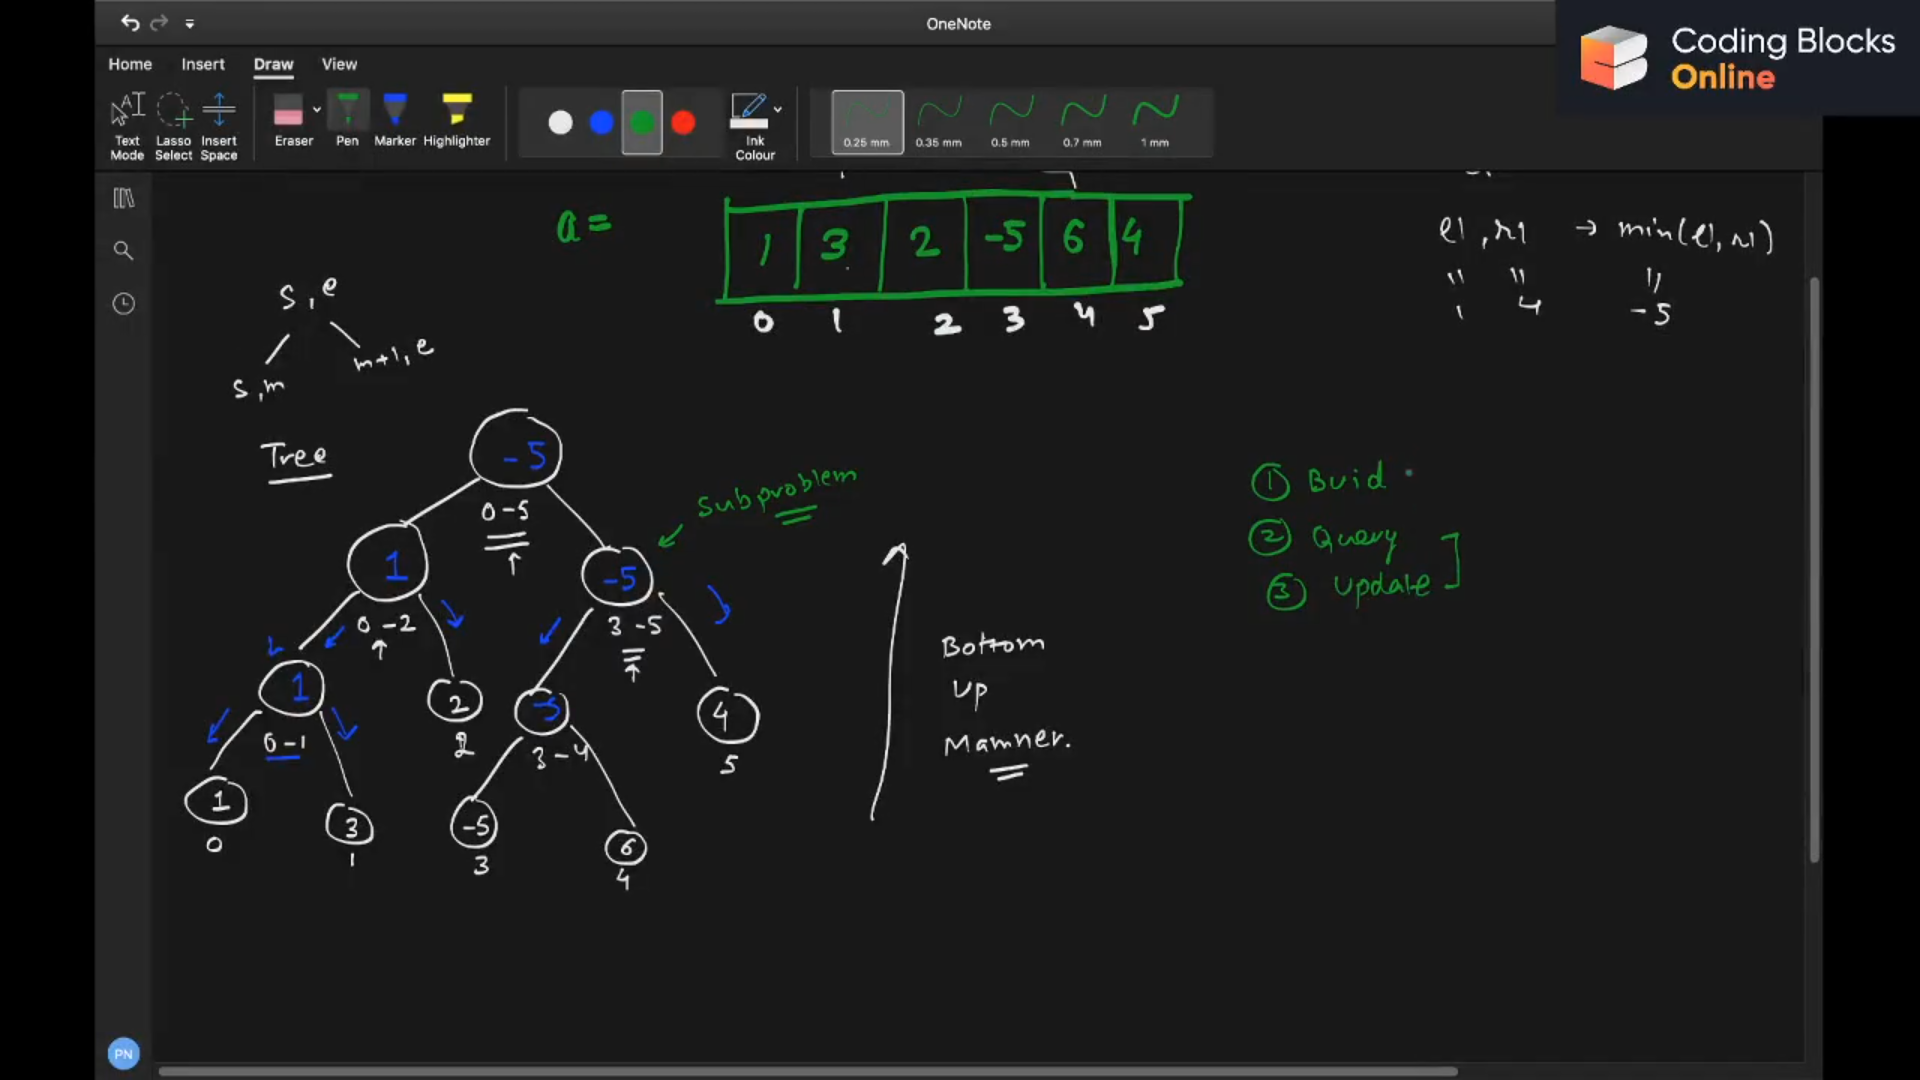 OneNote
Coding Blocks
Online
Home Insert Draw View
Text Mode
Lasso Select
Insert Space
Eraser
Pen
Marker
Highlighter
Ink Colour
0.25 mm
0.35 mm
0.5 mm
0.7 mm
1 mm
a =
1 3 2 -5 6 4
0 1 2 3 4 5
l1, r1 → min(l1, r1)
" " "
1 4 -5
s, e
s, m
m+1, e
Tree
-5
0-5
Subproblem
1
0-2
-5
3-5
1
0-1
2
2
-5
3-4
4
5
1
0
3
1
-5
3
6
4
Bottom
Up
Mamner.
① Buid
② Query
③ Update
PN